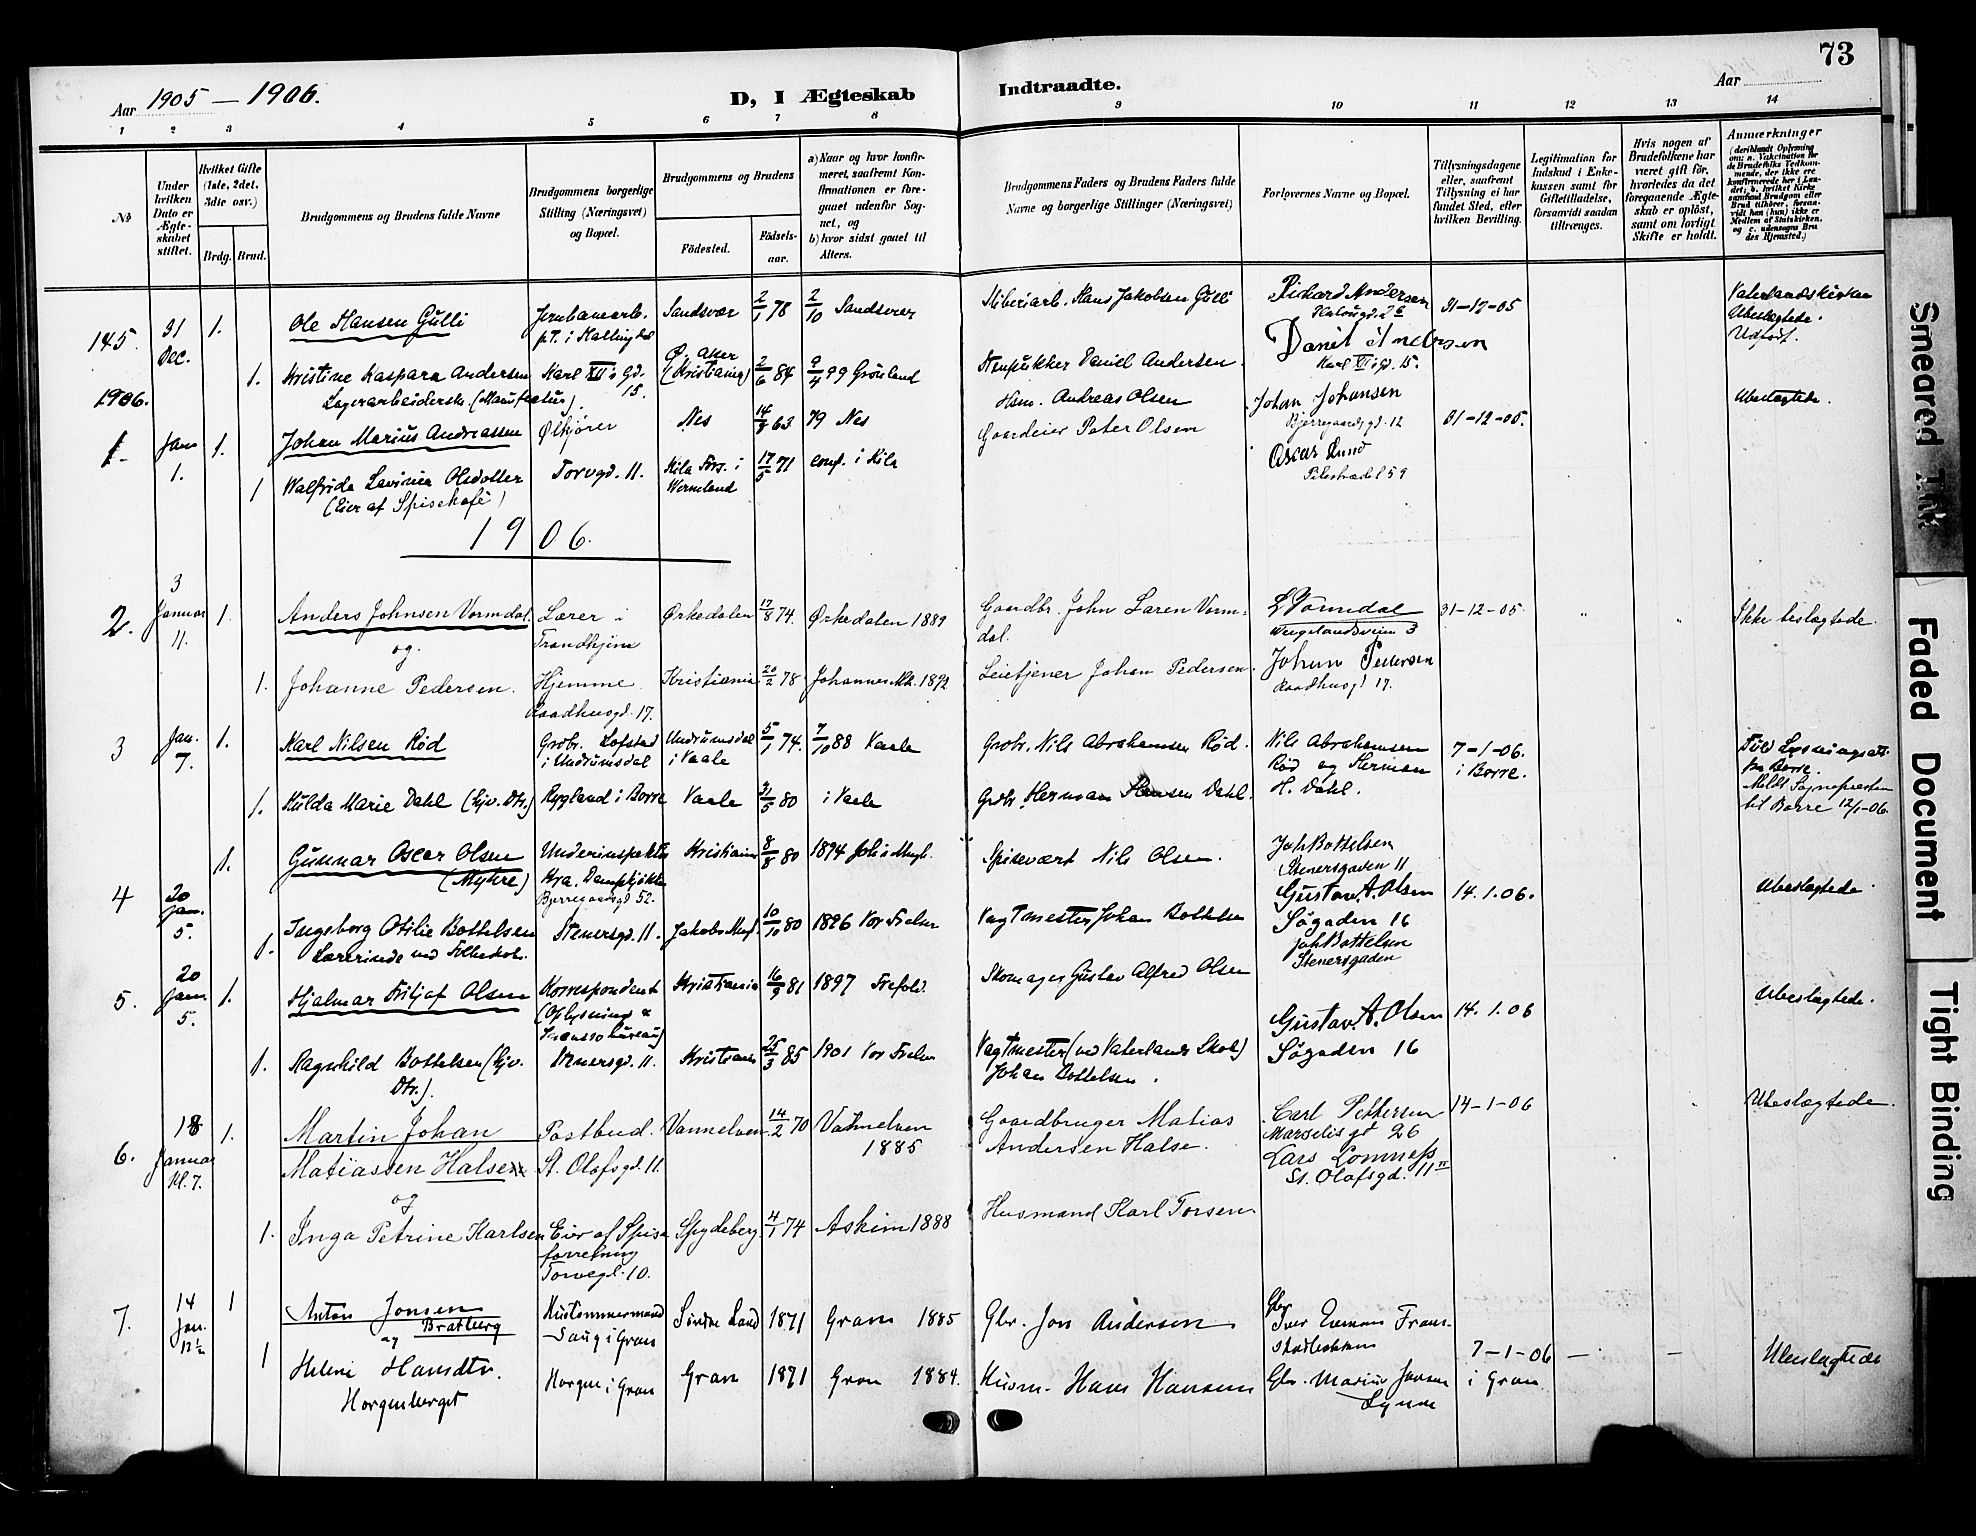 73
Aar 1905 — 1906.
D, I Ægteskab
Indtraadte.
Aar
1 2 3 4 5 6 7 8 9 10 11 12 13 14
No
Under hvilken Dato er Ægteskabet stiftet.
Hvilket Gifte (1ste, 2det, 3die osv.)
Brdg. Brud.
Brudgommens og Brudens fulde Navne
Brudgommens borgerlige Stilling (Næringsvei) og Bopæl.
Brudgommens og Brudens
Födested.
Födselsaar.
a) Naar og hvor konfirmeret, saafremt Konfirmationen er foregaaet udenför Sognet, og
b) hvor sidst gaaet til Alters.
Brudgommens Faders og Brudens Faders fulde Navne og borgerlige Stillinger (Næringsvei)
Forlovernes Navne og Bopæl.
Tillysningsdagene eller, saafremt Tillysning ei har fundet Sted, efter hvilken Bevilling.
Legitimation for Indskud i Enkekassen samt for Giftetilladelse, forsaavidt saadan tiltrænges.
Hvis nogen af Brudefolkene har været gift før, hvorledes da det foregaaende Ægteskab er opløst, samt om lovligt Skifte er holdt.
Anmærkninger
(deriblandt Oplysning om: a. Vakcination for de Brudefolks Vedkommende, der ikke ere konfirmerede her i Landet; b. hvilket Kirkesamfund Brudgom eller Brud tilhörer, forsaavidt han (hun) ikke er Medlem af Statskirken, og c. udensogns Brudes Hjemsted.)
145. 31 Dec. 1. Ole Hansen Gulli Jernbanearb. p.T. i Hallingdal Sandsvær 2/1 78 2/10 Sandsvær Hans Jakobsen Gulli Richard Andersen 31-12-05 Vaterlandskirken Ubeslægtede.
1. Kristine Kaspara Andersen Karl XII's Gd. 15. Ø. Aker (Kristiania) 2/6 84 9/4 99 Grønland Daniel Andersen Daniel Andersen Karl XII gd. 15.
Lagerarbeiderske
1906.
1. Jan 1. 1. Johan Marius Andreassen Ølkjører Nes 63 79 Nes Hsm. Andreas Olsen Johan Johansen Bjerregaardsgd. 12 31-12-05. Ubeslægtede.
1 Walfrida Lavinia Olsdotter Torvgd. 11. Kila Fors. i Wermeland 17/5 71 conf. i Kila Gaardeier Peter Olsen Oscar Lund Pilestrædet 59
(Eier af Spisekafé)
1906.
2. 3 Januar 11. 1. Anders Johnsen Vormdal Lærer i Trondhjem Ørkedalen 17/8 74. Ørkedalen 1889 Gaardbr. John Larsen Vormdal. L Vormdal Wergelandsveien 3 31-12-05. " " Ikke beslægtede.
og
1. Johanne Pedersen. Hjemme Raadhusgd. 17. Kristiania 20/2 78 Johannes Mk. 1892 Leietjener Johan Pedersen. Johan Pedersen Raadhusgd 17.
3 Jan. 7. 1. Karl Nilsen Rød Grdbr. Lofstad i Undrumsdal Undrumsdal i Vaale 5/1 74. 7/10 88 Vaale Grdbr. Nils Abrahamsen Rød. Nils Abrahamsen Rød og Herman H. Dahl. 7-1-06. i Borre. fra Borre.
1. Hulda Marie Dahl (Gjv. Dtr.) Rygland i Borre Vaale 31/5 80 i Vaale Grdbr. Herman Hansen Dahl. Meldt Sognepræsten til Borre 12/1-06.
4 20 Jan. 5. 1. Gunnar Oscar Olsen (Myhre) Underinspektør Kra. Dampkjøkken Bjerregaardsgd 52. Kristiania 8/8 80 1894 Spisevært Nils Olsen. Joh Bottelsen Stenersgaden 11 Gustav. A. Olsen Søgaden 16 14.1.06. Ubeslægtede.
1. Ingeborg Otilie Bottelsen Stenersgd. 11. Jakobs Mgh. 10/10 80 1896 Vor Frelser Vagtmester Johan Bottelsen Joh Bottelsen Stenersgaden
Lærerinde ved Folkeskol.
5. 20 Jan. 5. 1. Hjalmar Fritjof Olsen Korrespondent (Oplysnings & Inkassobureau) Kristiania 16/9 81 1897 Trefold. Skomager Gustav Alfred Olsen Gustav. A. Olsen Søgaden 16 14.1.06 Ubeslægtede.
1. Ragnhild Bottelsen (Gjv. Dtr.). Stenersgd. 11. Kristiania 25/3 85 1901 Vor Frelser Vagtmester (ved Vaterlands Skole) Johan Bottelsen.
6. 18 Januar kl. 7. 1. Martin Johan Matiassen Halse Postbud. St. Olafsgd. 11. Vannelven 14/2 70 Vannelven 1885 Gaardbruger Matias Andersen Halse. Carl Pettersen Marselisgt 26 Lars Lomness St. Olafsgd. 11 14-1-06 Ubeslægtede.
og
1. Inga Petrine Karlsen Eier af Spiseforretning Torvegd. 10. Spydeberg 4/1 74 Askim 1888 Husmand Karl Torsen
7. 14 Jan. 12½ 1 Anton Jonsen Bratberg Hustømmermand i Gran Søndre Land 1871 Gran 1885 Gbr. Jon Andersen Gbr Iver
og
1 Helene Hansdtr. Horgenberget Horgen i Gran Gran 1871 Gran 1884. Husm. Hans Hansen Gbr. Martin Jensen Lynne 7-1-06 i Gran — — Ubeslægtede
Smeared Ink
Faded Document
Tight Binding